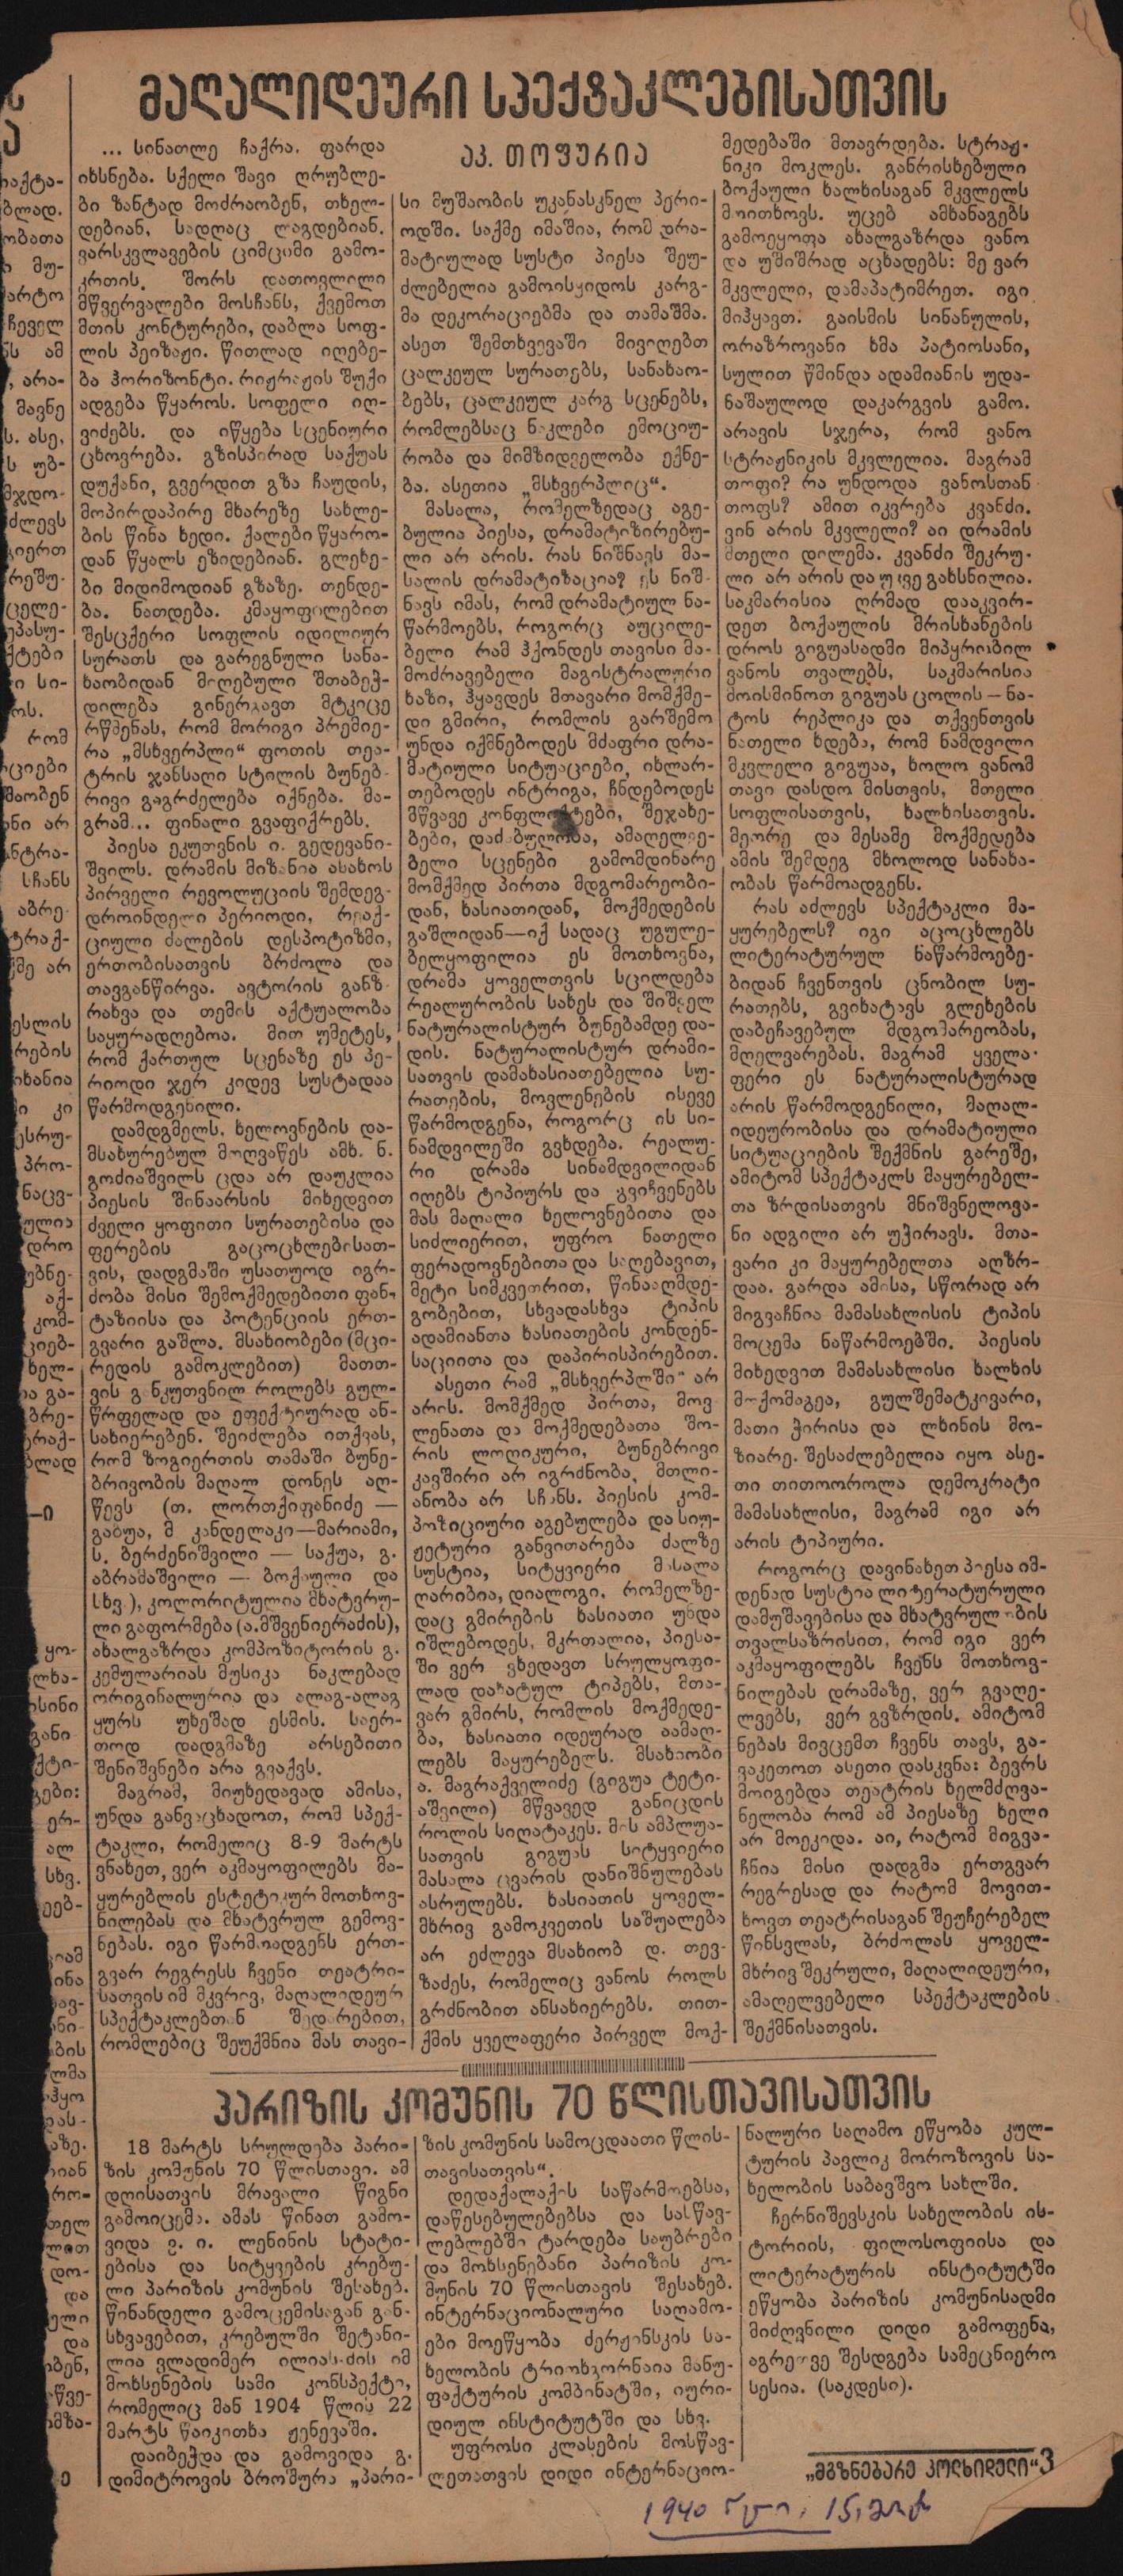 მაღალიდეური სპექტაკლებისათვის
აკ. თოფურია
... სინათლე ჩაქრა. ფარდა
იხსნება. სქელი შავი ღრუბლე-
ბი ზანტად მოძრაობენ, თხელ-
დებიან, სადღაც ლაგდებიან.
ვარსკვლავების ციმციმი გამო-
კრთის. შორს დათოვლილი
მწვერვალები მოსჩანს, ქვემოთ
მთის კონტურები, დაბლა სოფ-
ლის პეიზაჟი. წითლად იღებე-
ბა ჰორიზონტი. რიჟრაჟის შუქი
ადგება წყაროს. სოფელი იღ-
ვიძებს. და იწყება სცენიური
ცხოვრება. გზისპირად საქუას
დუქანი, გვერდით გზა ჩაუდის,
მოპირდაპირე მხარეზე სახლე-
ბის წინა ხედი. ქალები წყარო-
დან წყალს ეზიდებიან. გლეხე-
ბი მიდიმოდიან გზაზე. თენდე-
ბა. ნათდება. კმაყოფილებით
შესცქერი სოფლის იდილიურ
სურათს და გარეგნული სანა-
ხაობიდან მიღებული შთაბეჭ-
დილება გინერგავთ მტკიცე
რწმენას, რომ მორიგი პრემიე-
რა „მსხვერპლი“ ფოთის თეა-
ტრის ჯანსაღი სტილის ბუნებ-
რივი გაგრძელება იქნება. მა-
გრამ... ფინალი გვაფიქრებს.
პიესა ეკუთვნის ი. გედევანი-
შვილს. დრამის მიზანია ასახოს
პირველი რევოლუციის შემდეგ-
დროინდელი პერიოდი, რეაქ-
ციული ძალების დესპოტიზმი,
ერთობისათვის ბრძოლა და
თავგანწირვა. ავტორის განზ-
რახვა და თემის აქტუალობა
საყურადღებოა. მით უმეტეს,
რომ ქართულ სცენაზე ეს პე-
რიოდი ჯერ კიდევ სუსტადაა
წარმოდგენილი.
დამდგმელს, ხელოვნების და-
მსახურებულ მოღვაწეს ამხ. ნ.
გოძიაშვილს ცდა არ დაუკლია
პიესის შინაარსის მიხედვით
ძველი ყოფითი სურათებისა და
ფერების გაცოცხლებისათ-
ვის, დადგმაში უსათუოდ იგრ-
ძობა მისი შემოქმედებითი ფან-
ტაზიისა და პოტენციის ერთ-
გვარი გაშლა. მსახიობები (მცი-
რედის გამოკლებით) მათთ-
ვის განკუთვნილ როლებს გულ-
წრფელად და ეფექტიურად ან-
სახიერებენ. შეიძლება ითქვას,
რომ ზოგიერთის თამაში ბუნე-
ბრივობის მაღალ დონეს აღ-
წევს (თ. ლორთქიფანიძე —
გაბუა, მ კანდელაკი—მარიამი,
ს. ბერძენიშვილი — საქუა, გ.
აბრამაშვილი — ბოქაული და
სხვ.), კოლორიტულია მხატვრუ-
ლი გაფორმება (ა. მშვენიერაძის),
ახალგაზრდა კომპოზიტორის გ.
კემულარიას მუსიკა ნაკლებად
ორიგინალურია და ალაგ-ალაგ
ყურს უხეშად ესმის. საერ-
თოდ დადგმაზე არსებითი
შენიშვნები არა გვაქვს.
მაგრამ, მიუხედავად ამისა,
უნდა განვაცხადოთ, რომ სპექ-
ტაკლი, რომელიც 8-9 მარტს
ვნახეთ, ვერ აკმაყოფილებს მა-
ყურებლის ესტეტიკურ მოთხოვ-
ნილებას და მხატვრულ გემოვ-
ნებას. იგი წარმოადგენს ერთ-
გვარ რეგრესს ჩვენი თეატრი-
სათვის იმ მკვრივ, მაღალიდეურ
სპექტაკლებთან შედარებით,
რომლებიც შეუქმნია მას თავი-
სი მუშაობის უკანასკნელ პერი-
ოდში. საქმე იმაშია, რომ დრა-
მატიულად სუსტი პიესა შეუ-
ძლებელია გამოისყიდოს კარგ-
მა დეკორაციებმა და თამაშმა.
ასეთ შემთხვევაში მივიღებთ
ცალკეულ სურათებს, სანახაო-
ბებს, ცალკეულ კარგ სცენებს,
რომლებსაც ნაკლები ემოციუ-
რობა და მიმზიდველობა ექნე-
ბა. ასეთია „მსხვერპლიც“.
მასალა, რომელზედაც აგე-
ბულია პიესა, დრამატიზირებუ-
ლი არ არის. რას ნიშნავს მა-
სალის დრამატიზაცია? ეს ნიშ-
ნავს იმას, რომ დრამატიულ ნა-
წარმოებს, როგორც აუცილე-
ბელი რამ ჰქონდეს თავისი მა-
მოძრავებელი მაგისტრალური
ხაზი, ჰყავდეს მთავარი მომქმე-
დი გმირი, რომლის გარშემო
უნდა იქმნებოდეს მძაფრი დრა-
მატიული სიტუაციები, იხლარ-
თებოდეს ინტრიგა, ჩნდებოდეს
მწვავე კონფლიქტები, შეჯახე-
ბები, დაძაბულობა, ამაღელვე-
ბელი სცენები გამომდინარე
მომქმედ პირთა მდგომარეობი-
დან, ხასიათიდან, მოქმედების
გაშლიდან—იქ სადაც უგულე-
ბელყოფილია ეს მოთხოვნა,
დრამა ყოველთვის სცილდება
რეალურობის სახეს და შიშველ
ნატურალისტურ ბუნებამდე და-
დის. ნატურალისტურ დრამი-
სათვის დამახასიათებელია სუ-
რათების, მოვლენების ისევე
წარმოდგენა, როგორც ის სი-
ნამდვილეში გვხდება. რეალუ-
რი დრამა სინამდვილიდან
იღებს ტიპიურს და გვიჩვენებს
მას მაღალი ხელოვნებითა და
სიძლიერით, უფრო ნათელი
ფერადოვნებითა და საღებავით,
მეტი სიმკვეთრით, წინააღმდე-
გობებით, სხვადასხვა ტიპის
ადამიანთა ხასიათების კონდენ-
საციითა და დაპირისპირებით.
ასეთი რამ „მსხვერპლში“ არ
არის. მომქმედ პირთა, მოვ-
ლენათა და მოქმედებათა შო-
რის ლოღიკური, ბუნებრივი
კავშირი არ იგრძნობა, მთლი-
ანობა არ სჩანს. პიესის კომ-
პოზიციური აგებულება და სიუ-
ჟეტური განვითარება ძალზე
სუსტია, სიტყვიერი მასალა
ღარიბია, დიალოგი, რომელზე-
დაც გმირების ხასიათი უნდა
იშლებოდეს, მკრთალია, პიესა-
ში ვერ ვხედავთ სრულყოფი-
ლად დახატულ ტიპებს, მთა-
ვარ გმირს, რომლის მოქმედე-
ბა, ხასიათი იდეურად აამაღ-
ლებს მაყურებელს. მსახიობი
ა. მაგრაქველიძე (გიგუა ტეტი-
აშვილი) მწვავედ განიცდის
როლის სიღატაკეს. მის ამპლუა-
სათვის გიგუას სიტყვიერი
მასალა ცვარის დანიშნულებას
ასრულებს. ხასიათის ყოველ-
მხრივ გამოკვეთის საშუალება
არ ეძლევა მსახიობ დ. თევ-
ზაძეს, რომელიც ვანოს როლს
გრძნობით ანსახიერებს. თით-
ქმის ყველაფერი პირველ მოქ-
მედებაში მთავრდება. სტრაჟ-
ნიკი მოკლეს. განრისხებული
ბოქაული ხალხისაგან მკვლელს
მოითხოვს. უცებ ამხანაგებს
გამოეყოფა ახალგაზრდა ვანო
და უშიშრად აცხადებს: მე ვარ
მკვლელი, დამაპატიმრეთ. იგი
მიჰყავთ. გაისმის სინანულის,
ორაზროვანი ხმა პატიოსანი,
სულით წმინდა ადამიანის უდა-
ნაშაულოდ დაკარგვის გამო.
არავის სჯერა, რომ ვანო
სტრაჟნიკის მკვლელია. მაგრამ
თოფი? რა უნდოდა ვანოსთან
თოფს? ამით იკვრება კვანძი.
ვინ არის მკვლელი? აი დრამის
მთელი დილემა. კვანძი შეკრუ-
ლი არ არის და უკვე გახსნილია.
საკმარისია ღრმად დააკვირ-
დეთ ბოქაულის მრისხანების
დროს გიგუასადმი მიპყრობილ
ვანოს თვალებს, საკმარისია
მოისმინოთ გიგუას ცოლის — ნა-
ტოს რეპლიკა და თქვენთვის
ნათელი ხდება, რომ ნამდვილი
მკვლელი გიგუაა, ხოლო ვანომ
თავი დასდო მისთვის, მთელი
სოფლისათვის, ხალხისათვის.
მეორე და მესამე მოქმედება
ამის შემდეგ მხოლოდ სანახა-
ობას წარმოადგენს.
რას აძლევს სპექტაკლი მა-
ყურებელს? იგი აცოცხლებს
ლიტერატურულ ნაწარმოებე-
ბიდან ჩვენთვის ცნობილ სუ-
რათებს, გვიხატავს გლეხების
დაბეჩავებულ მდგომარეობას,
მღელვარებას. მაგრამ ყველა-
ფერი ეს ნატურალისტურად
არის წარმოდგენილი, მაღალ-
იდეურობისა და დრამატიული
სიტუაციების შექმნის გარეშე,
ამიტომ სპექტაკლს მაყურებელ-
თა ზრდისათვის მნიშვნელოვა-
ნი ადგილი არ უჭირავს. მთა-
ვარი კი მაყურებელთა აღზრ-
დაა. გარდა ამისა, სწორად არ
მიგვაჩნია მამასახლისის ტიპის
მოცემა ნაწარმოებში. პიესის
მიხედვით მამასახლისი ხალხის
მოქომაგეა, გულშემატკივარი,
მათი ჭირისა და ლხინის მო-
ზიარე. შესაძლებელია იყო ასე-
თი თითოოროლა დემოკრატი
მამასახლისი, მაგრამ იგი არ
არის ტიპიური.
როგორც დავინახეთ პიესა იმ-
დენად სუსტია ლიტერატურული
დამუშავებისა და მხატვრულობის
თვალსაზრისით, რომ იგი ვერ
აკმაყოფილებს ჩვენს მოთხოვ-
ნილებას დრამაზე, ვერ გვაღე-
ლვებს, ვერ გვზრდის. ამიტომ
ნებას მივცემთ ჩვენს თავს, გა-
ვაკეთოთ ასეთი დასკვნა: ბევრს
მოიგებდა თეატრის ხელმძღვა-
ნელობა რომ ამ პიესაზე ხელი
არ მოეკიდა. აი, რატომ მიგვა-
ჩნია მისი დადგმა ერთგვარ
რეგრესად და რატომ მოვით-
ხოვთ თეატრისაგან შეუჩერებელ
წინსვლას, ბრძოლას ყოველ-
მხრივ შეკრული, მაღალიდეური,
ამაღელვებელი სპექტაკლების
შექმნისათვის.
პარიზის კომუნის 70 წლისთავისათვის
18 მარტს სრულდება პარი-
ზის კომუნის 70 წლისთავი. ამ
დღისათვის მრავალი წიგნი
გამოიცემა. ამას წინათ გამო-
ვიდა ვ. ი. ლენინის სტატი-
ებისა და სიტყვების კრებუ-
ლი პარიზის კომუნის შესახებ.
წინანდელი გამოცემისაგან გან-
სხვავებით, კრებულში შეტანი-
ლია ვლადიმერ ილიას-ძის იმ
მოხსენების სამი კონსპექტი,
რომელიც მან 1904 წლის 22
მარტს წაიკითხა ჟენევაში.
დაიბეჭდა და გამოვიდა გ.
დიმიტროვის ბროშურა „პარი-
ზის კომუნის სამოცდაათი წლის-
თავისათვის“.
დედაქალაქის საწარმოებსა,
დაწესებულებებსა და სასწავ-
ლებლებში ტარდება საუბრები
და მოხსენებანი პარიზის კო-
მუნის 70 წლისთავის შესახებ.
ინტერნაციონალური საღამო-
ები მოეწყობა ძერჟინსკის სა-
ხელობის ტრიოხგორნაია მანუ-
ფაქტურის კომბინატში, იური-
დიულ ინსტიტუტში და სხვ.
უფროსი კლასების მოსწავ-
ლეთათვის დიდი ინტერნაციო-
ნალური საღამო ეწყობა კულ-
ტურის პავლიკ მოროზოვის სა-
ხელობის საბავშვო სახლში.
ჩერნიშევსკის სახელობის ის-
ტორიის, ფილოსოფიისა და
ლიტერატურის ინსტიტუტში
ეწყობა პარიზის კომუნისადმი
მიძღვნილი დიდი გამოფენა,
აგრეთვე შესდგება სამეცნიერო
სესია. (საკდესი).
„მგზნებარე კოლხიდელი“ 3
1940 წლი. 15, მარტ